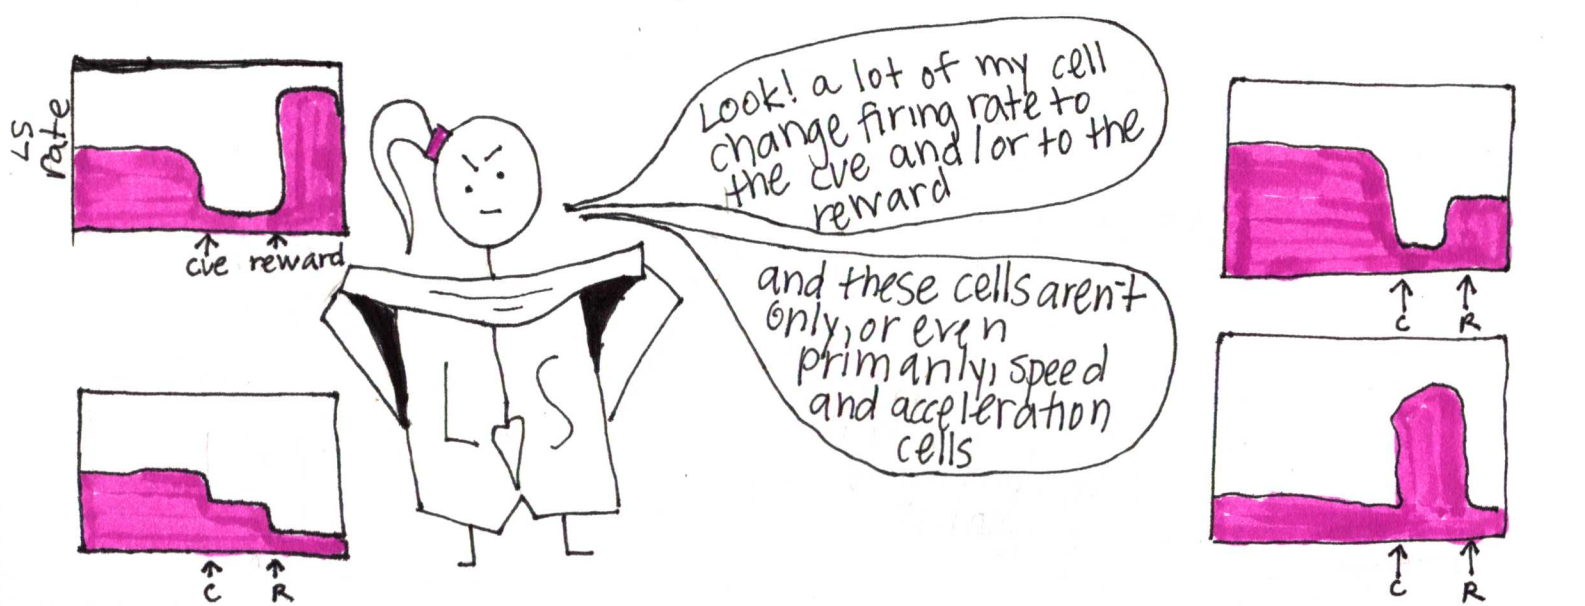 LS
rate
cue reward
C R
L S
Look! a lot of my cell
change firing rate to
the cue and/or to the
reward
and these cells aren't
only, or even
primarily, speed
and acceleration
cells
C R
C R